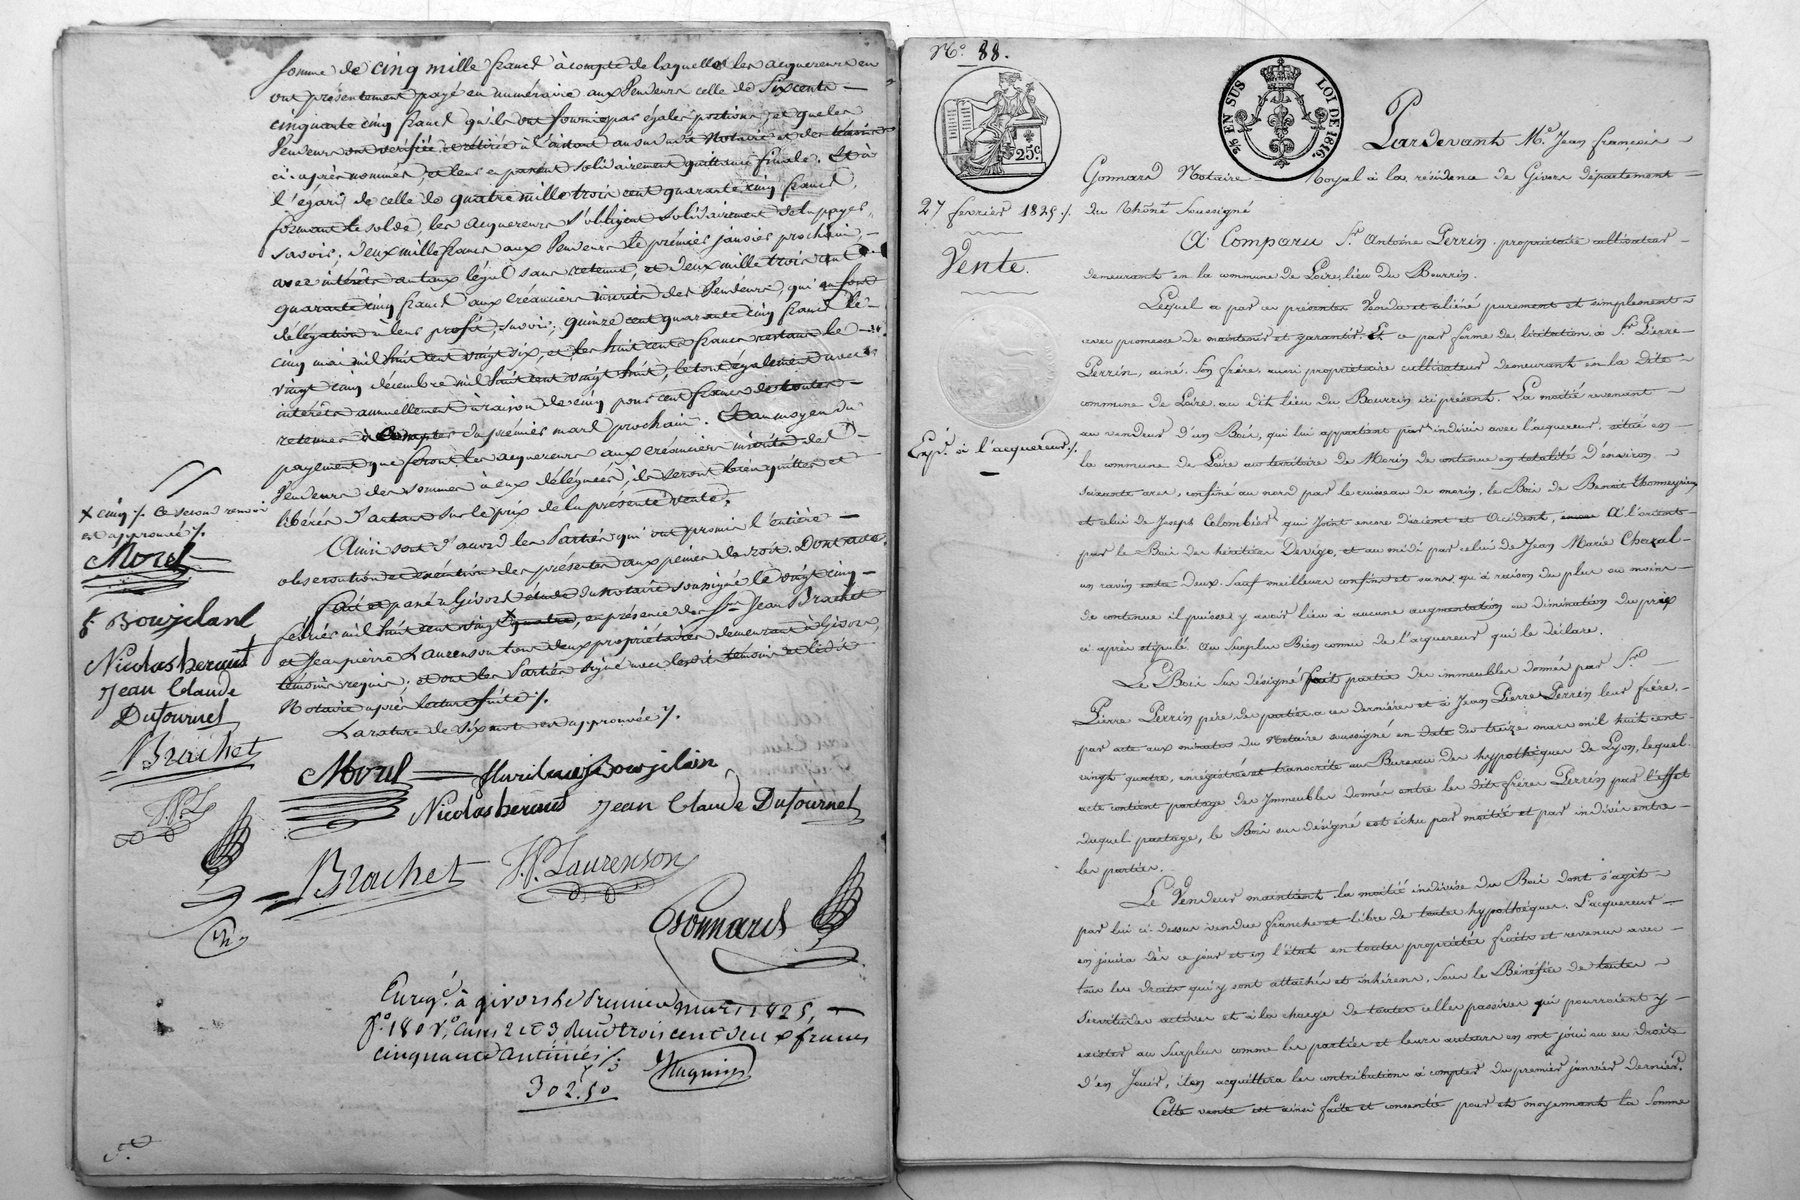 somme de cinq mille francs à compte de laquelle les acquereurs en
ont présentement payé en numéraire aux Vendeurs celle de Six cents
cinquante cinq francs qu'ils ont fournie par égales portions, et que les
Vendeurs ont vérifiée et retirée à l'instant au vu du Notaire et des témoins
ci-après nommés, et leur en passent solidairement quittance finale. Et à
l'égard de celle de quatre mille trois cent quarante cinq francs,
formant le solde, les acquereurs s'obligent solidairement de la payer,
savoir; deux mille francs aux Vendeurs le prémier janvier prochain,
avec intérêts au taux légal sans retenue, et deux mille trois cent
quarante cinq francs aux créanciers inscrits des Vendeurs, qui en font
délégation à leur profit, savoir; quinze cent quarante cinq francs le
cinq mai mil huit cent vingt six, et les huit cents francs restant le
vingt cinq décembre mil huit cent vingt huit, le tout également avec
intérêts annuellement à raison de cinq pour cent francs de toutes
retenues à compter du prémier mars prochain. Et au moyen du
payement que feront les acquereurs aux créanciers inscrits des
Vendeurs des sommes à eux déléguées, ils seront bien quittes et
libérés d'autant sur le prix de la présente vente.
Ainsi sont d'accord les Parties qui ont promis l'entière
observation et exécution des présentes aux peines de droit. Dont acte,
Fait et passé à Givors étude du Notaire soussigné le vingt cinq
février mil huit cent vingt x quatre, en présence des Srs Jean Brachet
et Jean pierre Laurenson tous deux propriétaires demeurant à Givors,
témoins requis, et ont les Parties signé avec lesdits témoins et ledit
Notaire après lecture faite /.
La rature de six mots est approuvée /.
x cinq /. Ce second renvoi
est approuvé /.
Morel
f. Boujelard
Nicolas heraud
Jean Claude
Dufournel
Brachet
J.P.L
Morel
Nicolas heraud Jean Claude Dufournel
Brachet J.P. Laurenson
Gonnard
Enregé. à givors le Premier mars 1825,
fo. 180 Vo. Cases 2 et 3 Reçu trois cent deux francs
cinquante Centimes /.
302.50
No. 88.
25c.
25 EN SUS
LOI DE 1816.
27 février 1825 /.
Vente.
Expn. à l'acquereur /.
Pardevant Me. Jean françois
Gonnard Notaire Royal à la résidence de Givors département
du Rhône soussigné
A Comparu Sr. Antoine Perrin propriétaire cultivateur
demeurant en la commune de Loire, lieu du Bourrin.
Lequel a par ces présentes Vendu et aliéné purement et simplement
avec promesse de maintenir et garantir. Et ce par forme de licitation à Sr. Pierre
Perrin, ainé, son frère, aussi propriétaire cultivateur demeurant en la dite
commune de Loire, au dit lieu du Bourrin ici présent. La moitié revenant
au vendeur d'un Bois, qui lui appartient par indivis avec l'acquereur, situé en
la commune de Loire au territoire de Morin de contenue en totalité d'environ
soixante ares, confiné au nord par le ruisseau de morin, le Bois de Benoit Thommeyrieux
et celui de Joseph Colombier qui joint encore d'orient et Occident, A l'orient
par le Bois des héritiers Devigo, et au midi par celui de Jean Marie Chazal
un ravin entre deux. Sauf meilleurs confins et sans qu'à raison du plus ou moins
de contenue il puisse y avoir lieu à aucune augmentation ou diminution du prix
ci après stipulé. Au surplus Bien connu de l'acquereur qui le déclare.
Le Bois sus désigné fait partie des immeubles donnés par Sr.
Pierre Perrin père de parties à ces dernières et à Jean Pierre Perrin leur frère,
par acte aux minutes du Notaire soussigné en date du treize mars mil huit cent
vingt quatre, enrégistré et transcrit au Bureau des hypothèques de Lyon, lequel
acte contient partage des Immeubles donnés entre les dits frères Perrin par l'effet
duquel partage, le Bois sus désigné est échu par moitié et par indivis entre
les parties.
Le Vendeur maintient la moitié indivise du Bois dont s'agit
par lui ci-dessus vendue franche et libre de toutes hypothèques. L'acquereur
en jouira dès ce jour et en l'état en toutes propriétés fruits et revenus avec
tous les droits qui y sont attachés et inhérens, sous le Bénéfice de toutes
servitudes actives et à la charge de toutes celles passives qui pourroient y
exister au Surplus comme les parties et leurs auteurs en ont joui ou eu droit
d'en jouir, il en acquittera les contributions à compter du premier janvier dernier.
Cette vente est ainsi faite et consentie pour et moyennant la somme